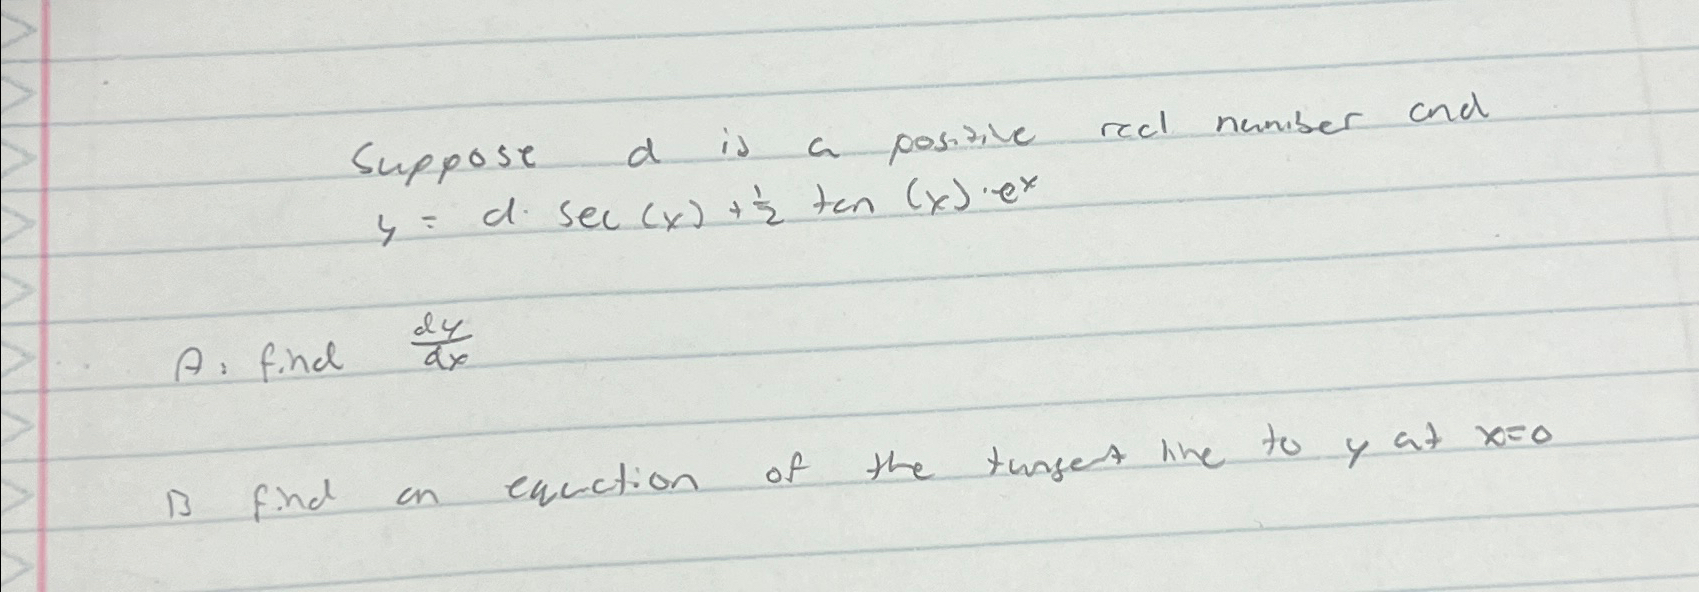 Suppose d is a positive real number and
y = d · sec (x) + 1/2 tan (x) · e^x
A: find dy/dx
B find an equation of the tangent line to y at x=0